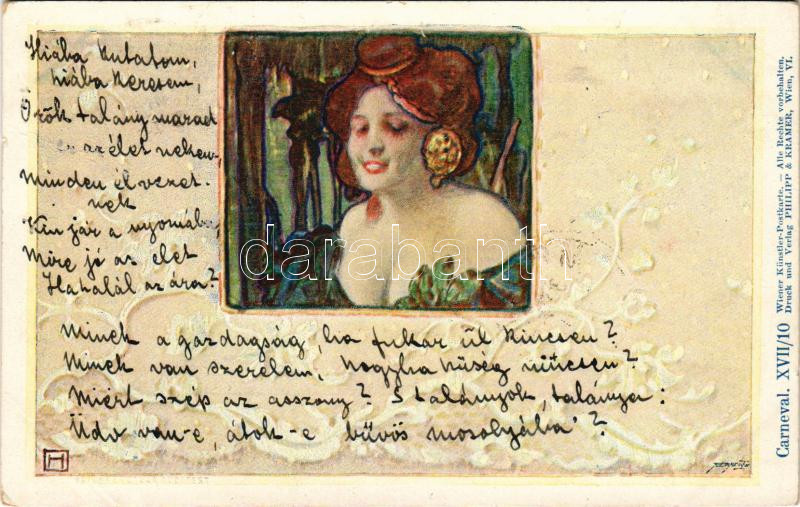 Hiába kutatom,
hiába keresem,
Örök talány marad
az élet nekem,
Minden élvezet-
nek
Kín jár a nyomába,
Mire jó az élet
Ha halál az ára?
Minek a gazdagság, ha fukar ül kincsen?
Minek van szerelem, hogyha hűség nincsen?
Miért szép az asszony? S talányok, talánya:
Üdv van-e, átok-e bűvös mosolyába'?
darabanth
H
Carneval. XVII/10
Wiener Künstler-Postkarte. — Alle Rechte vorbehalten.
Druck und Verlag PHILIPP & KRAMER, Wien, VI.